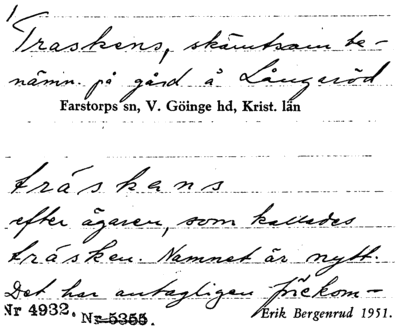 1/
Traskens, skämtsam be-
nämn. på gård å Långaröd
Farstorps sn, V. Göinge hd, Krist. län
träskans
efter ägaren, som kallades
träsken. Namnet är nytt.
Det har antagligen
Nr 4932. Nr 5355. Erik Bergenrud 1951.